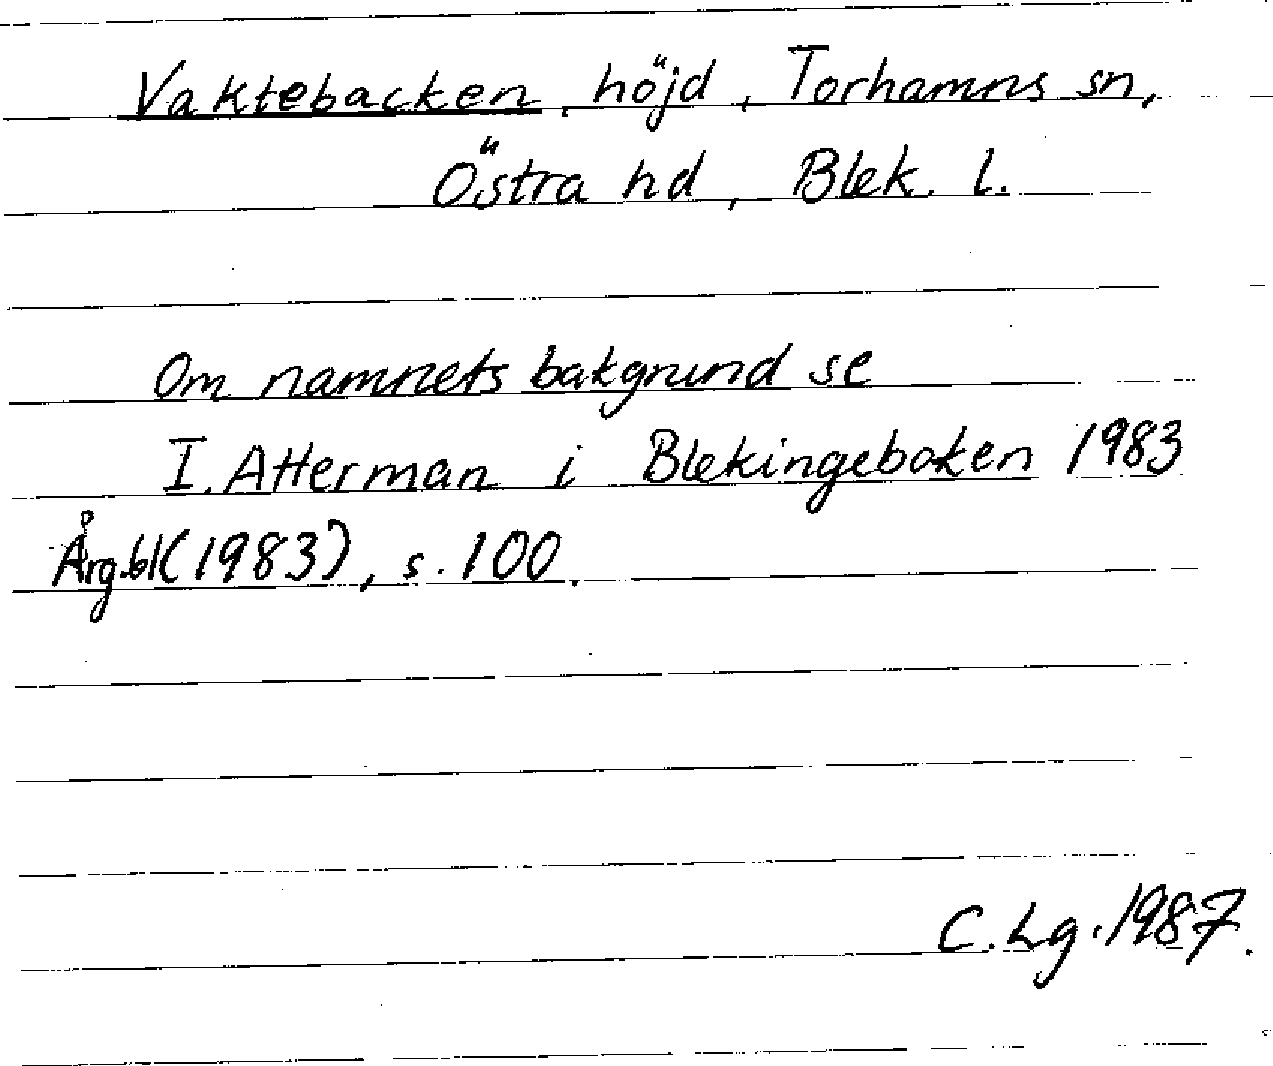 Vaktebacken, höjd, Torhamns sn,
Östra hd, Blek. l.
Om namnets bakgrund se
I. Atterman i Blekingeboken 1983
Årg.61(1983), s. 100.
C.Lg.1987.